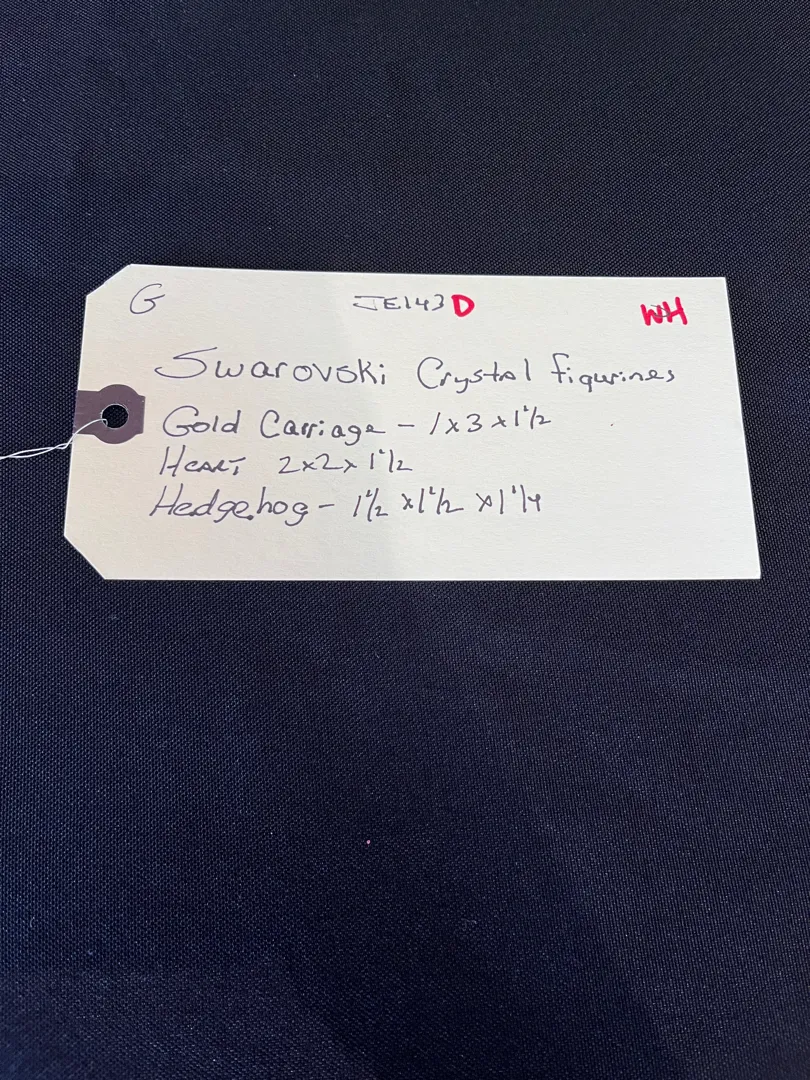 G JE143D WH
Swarovski Crystal figurines
Gold Carriage - 1x3x1 1/2
HEART 2x2x 1 1/2
Hedgehog - 1 1/2 x1 1/2 x1 1/4